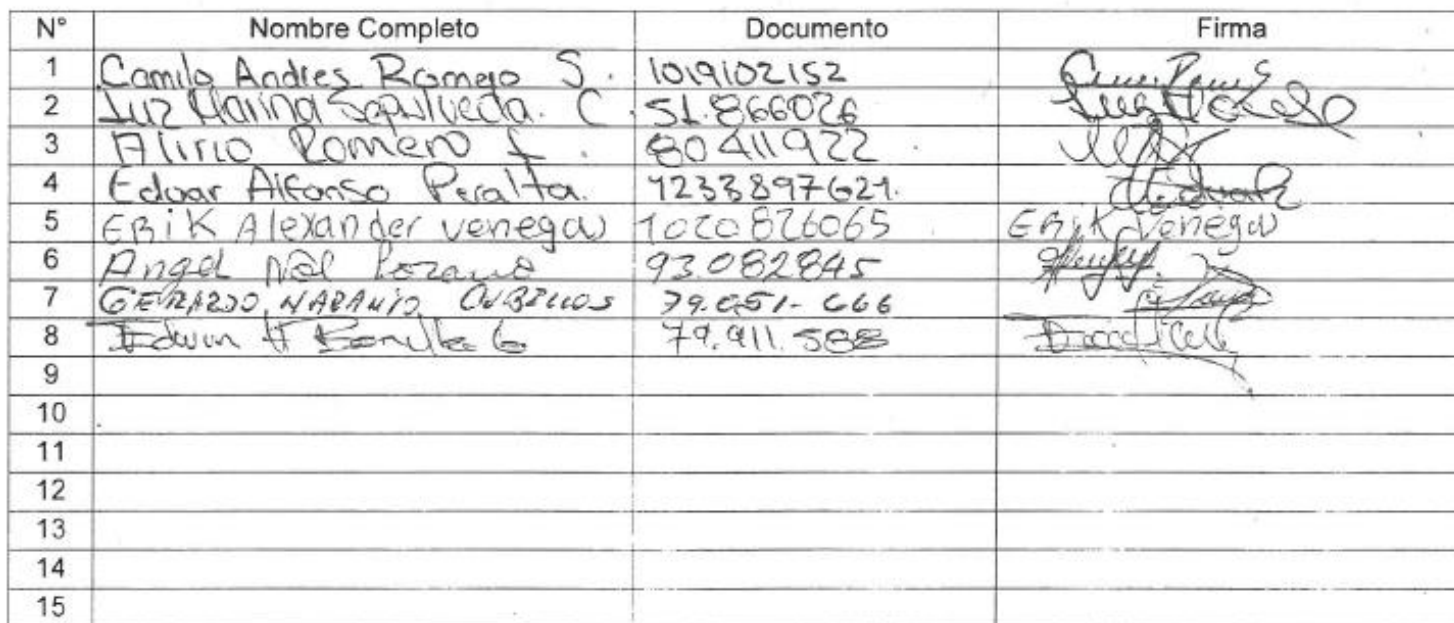 N° Nombre Completo Documento Firma
1 Camilo Andres Romero S. 1019102152
2 Luz Marina Sepulveda. C. 51.866026
3 Alirio Romero L. 80411922
4 Edgar Alfonso Peralta. 1233897621.
5 ERiK Alexander venegas 1020826065 ERiK Venegas
6 Angel Lozano 93.082845
7 GERARDO NARANJO CUBILLOS
8 Edwin H Bonilla G 79.911.588
9
10
11
12
13
14
15